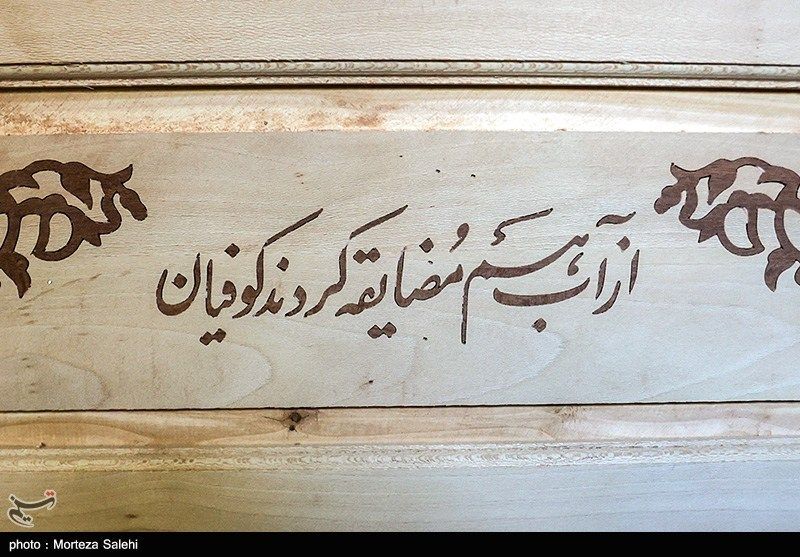 از آب هم مُضایقه کردند کوفیان
تسنیم
photo : Morteza Salehi